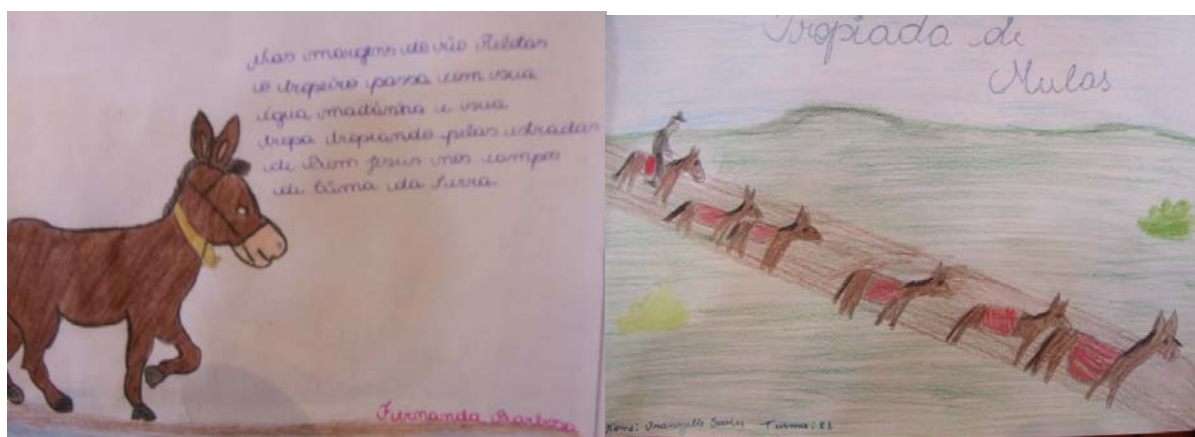 Nas margens do rio Pelotas
o tropeiro passa com sua
égua madrinha e sua
tropa tropiando pelas estradas
de Bom Jesus nos campos
de Cima da Serra.
Fernanda Barbosa
Tropiada de
Mulas
Nome: Soares Turma: 81